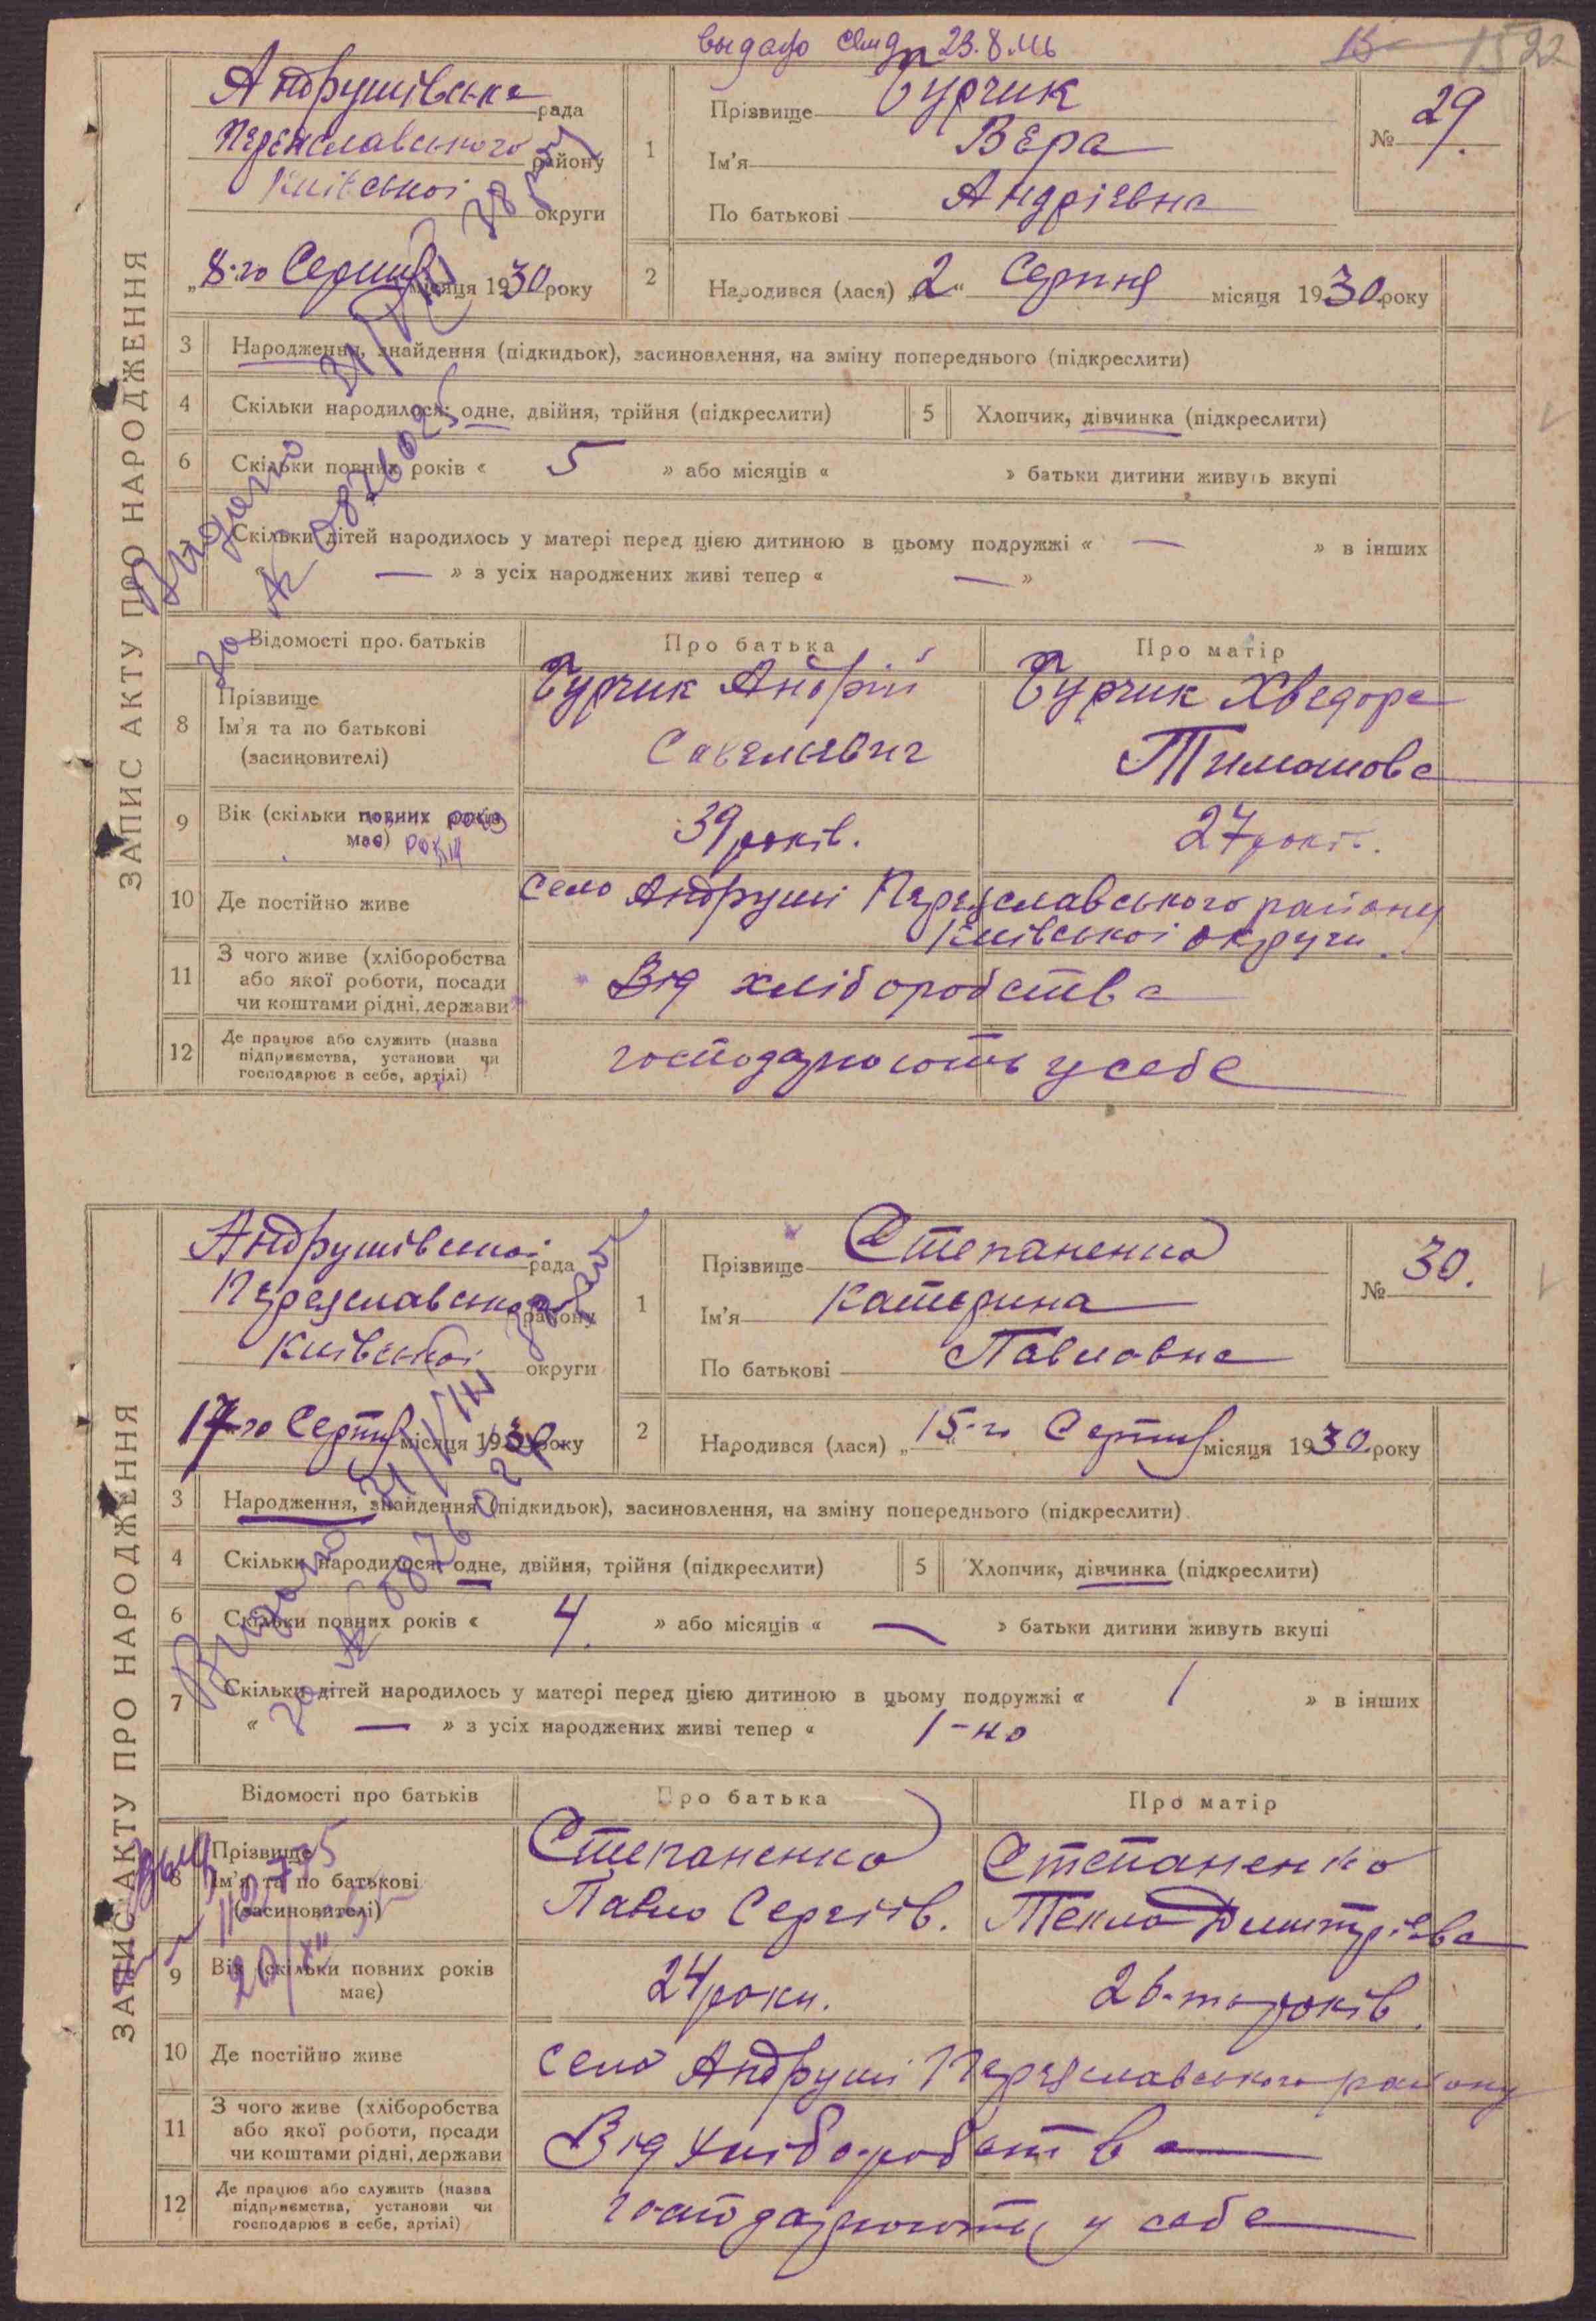 выдано свид 23.8.46
15 22
Андрушівська рада
Переяславського району
Київської округи
„8-го Серпня місяця 1930 року
1
Прізвище Бурчик
Ім'я Вера
По батькові Андрієвна
№ 29.
2
Народився (лася) „2“ Серпня місяця 1930 року
ЗАПИС АКТУ ПРО НАРОДЖЕННЯ
3 Народження, знайдення (підкидьок), засиновлення, на зміну попереднього (підкреслити)
4 Скільки народилося: одне, двійня, трійня (підкреслити)
5 Хлопчик, дівчинка (підкреслити)
6 Скільки повних років « 5 » або місяців « » батьки дитини живуть вкупі
Скільки дітей народилось у матері перед цією дитиною в цьому подружжі « — » в інших
— » з усіх народжених живі тепер « — »
Видано
за №
Відомості про батьків
Про батька
Про матір
8 Прізвище
Ім'я та по батькові
(засиновителі)
Бурчик Андрій
Савельевич
Бурчик Хведора
Тимошова
9 Вік (скільки повних років
має)
39 років.
27 років.
10 Де постійно живе
село Андруші Переяславського району
Київської округи
11 З чого живе (хліборобства
або якої роботи, посади
чи коштами рідні, держави
Від хліборобства
12 Де працює або служить (назва
підприємства, установи чи
господарює в себе, артілі)
господарюють у себе
Андрушівської рада
Переяславського району
Київської округи
17-го Серпня місяця 1930 року
1
Прізвище Степаненко
Ім'я Катерина
По батькові Павловна
№ 30.
2
Народився (лася) „15-го Серпня місяця 1930 року
ЗАПИС АКТУ ПРО НАРОДЖЕННЯ
3 Народження, знайдення (підкидьок), засиновлення, на зміну попереднього (підкреслити)
4 Скільки народилося: одне, двійня, трійня (підкреслити)
5 Хлопчик, дівчинка (підкреслити)
6 Скільки повних років « 4. » або місяців « — » батьки дитини живуть вкупі
7 Скільки дітей народилось у матері перед цією дитиною в цьому подружжі « 1 » в інших
« — » з усіх народжених живі тепер « 1-но
Видано
за №
Відомості про батьків
Про батька
Про матір
8 Прізвище
Ім'я та по батькові
(засиновителі)
Степаненко
Павло Сергіїв.
Степаненко
Текла Дмитрієва
9 Вік (скільки повних років
має)
24 роки.
26-ть років.
10 Де постійно живе
село Андруші Переяславського району
11 З чого живе (хліборобства
або якої роботи, посади
чи коштами рідні, держави
Від хліборобства
12 Де працює або служить (назва
підприємства, установи чи
господарює в себе, артілі)
господарюють у себе